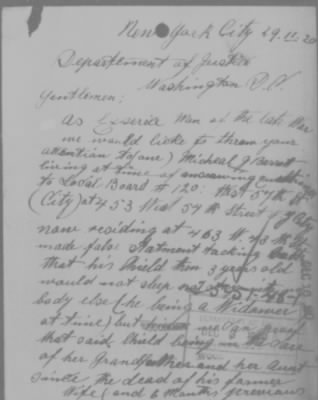 New York City 29.11.20
Departement of Justice
Washington D.C.
Gentlemen;
as Exserice Men of the late War
we would licke to throw your
attention to (one) Micheal J
living at time of
to Local Board # 120: West 54th St
(City) at 453 West 57th Street N.Y. City
now residing at 463 W. 43
made false Statment tacking Oath
that his Child then 3 years old
would not sleep
body else (he being a Widower
at time) but we can proof
that said Child being in the care
of her Grandfather and her Aunt
since the dead of his former
Wife (and 6 Months previous